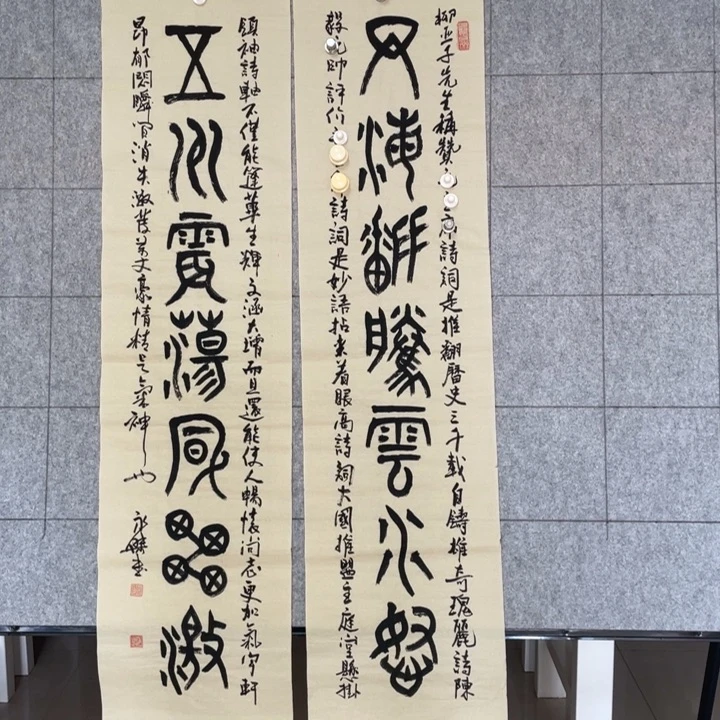 柳亞子先生稱贊席詩詞是推翻曆史三千載自鑄雄奇瑰麗詩陳
四海翻騰雲水怒
毅元帥評價詩詞是妙語拈來着眼高詩詞大國推盟主庭堂懸掛
領袖詩軸不僅能篷蓽生輝文涵大增而且還能使人暢懷尚志更加氣宇軒
五州震蕩風雷激
昂郁悶瞬間消失激發萬丈豪情精氣神也